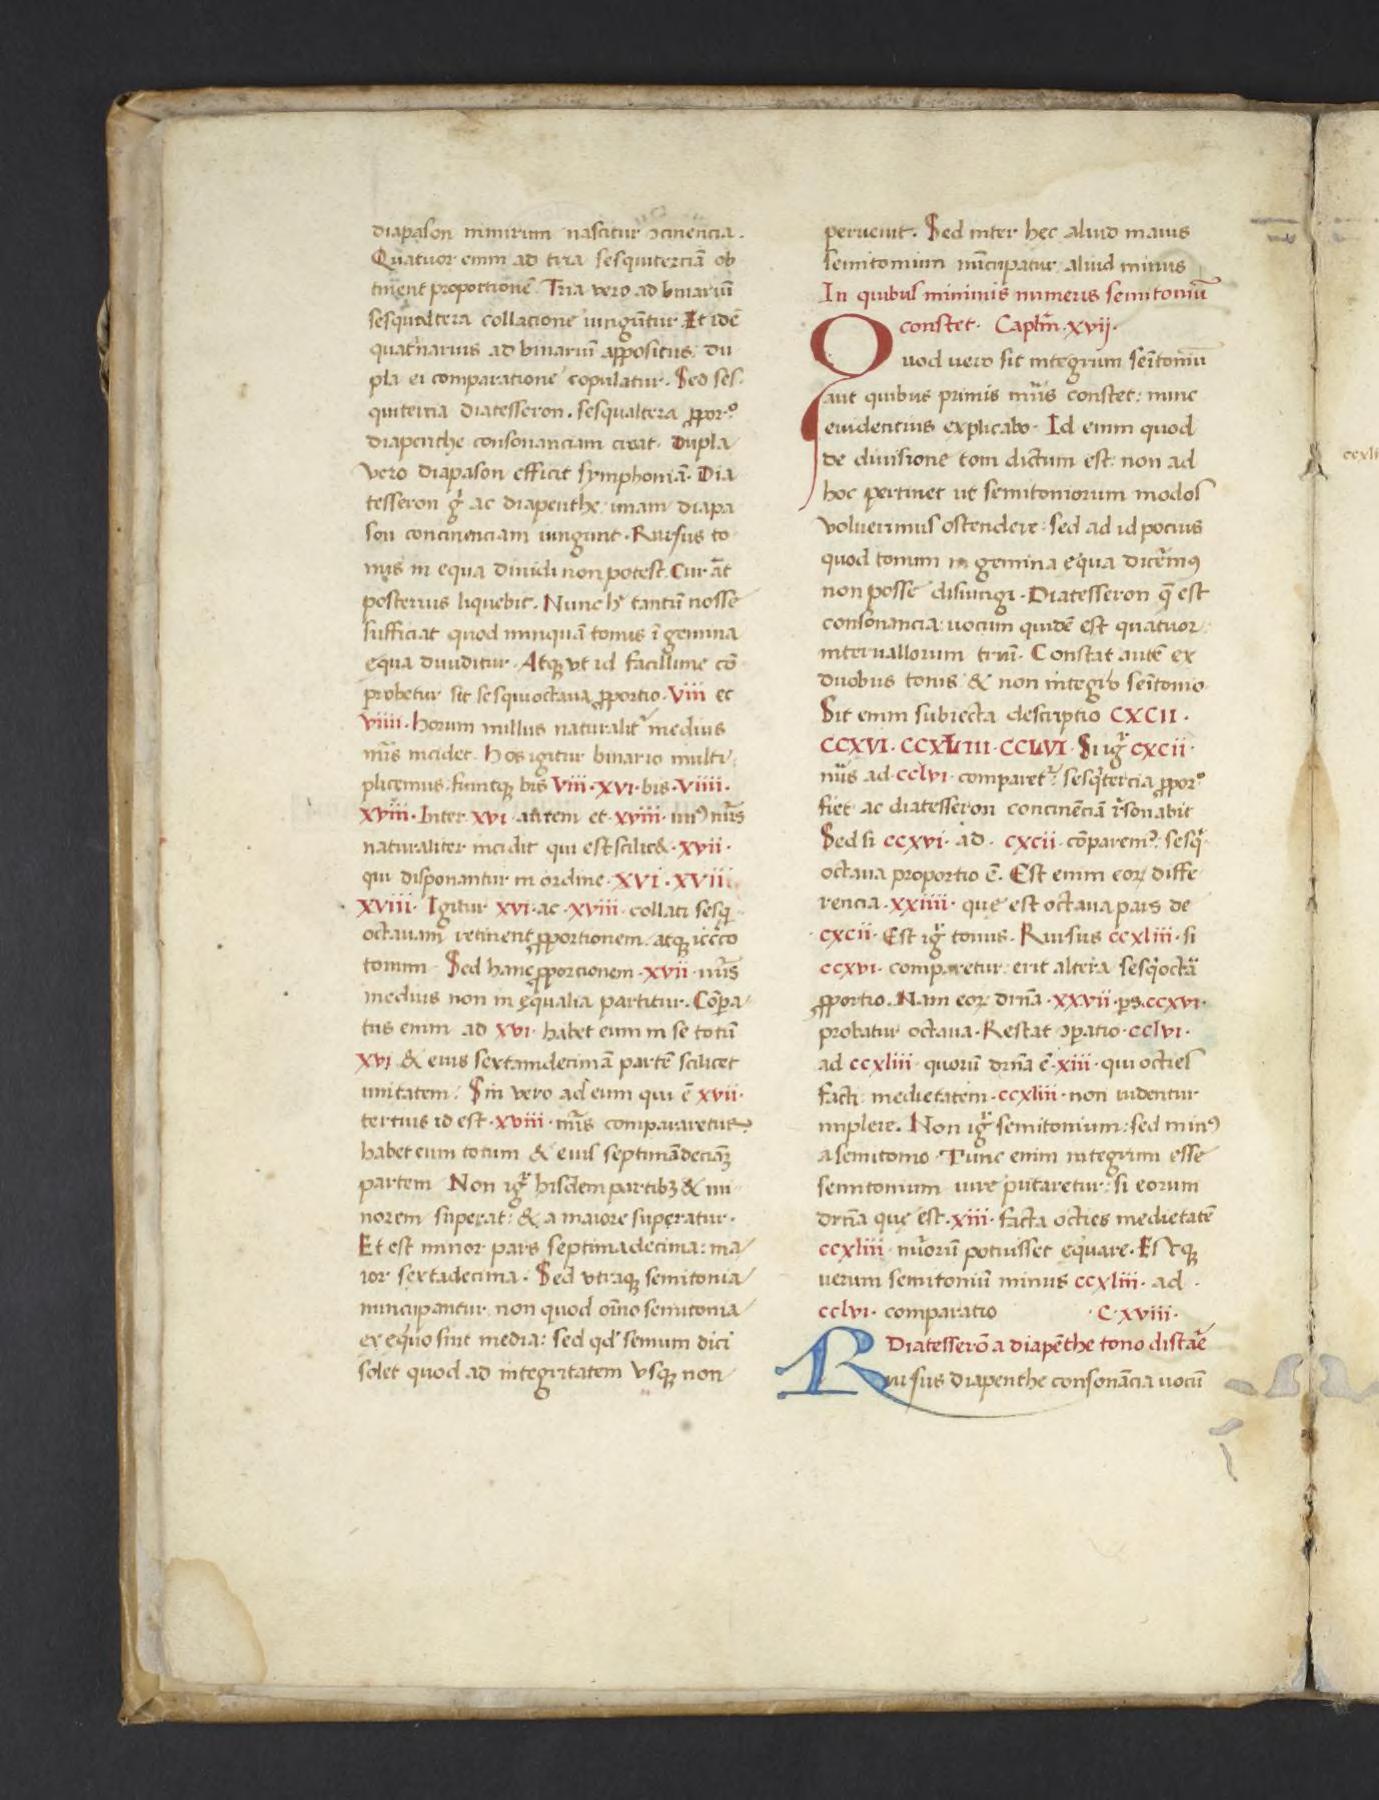 diapason nimirum nascitur ɔcinencia.
Quatuor enim ad tria sesquiterciā ob
tinent proportionē. Tria vero ad binariū
sesqualtera collacione iungūtur. Et idē
quat'narius ad binariū appositus: du
pla ei comparatione copulatur. Sed ses
quitercia diatesseron. sesqualtera ꝓpor°
diapenthe consonanciam creat. Dupla
vero diapason efficit symphoniā. Dia
tesseron g̊ ac diapenthe. unam diapa
son concinenciam iungunt. Rursus to
nus in equa diuidi non potest. Cur āt
posterius liquebit. Nunc h° tantū nosse
sufficiat quod nunquā tonus ī gemina
equa diuiditur. Atqꝫ vt id facillime cō
probetur sit sesquioctaua ꝓportio. Viii et
viiii. Horum nullus naturalit' medius
nūs incidet. Hos igitur binario multi
plicemus. fiuntqꝫ bis Viii. xvi. bis. Viiii.
xviii. Inter xvi. autem et xviii. un᾿ nūs
naturaliter incidit qui est scilic&. xvii.
qui disponantur in ordine. XVI. XVII.
XVIII. Igitur xvi. ac. xviii. collati sesq
octauam retinent ꝓportionem. atqꝫ
tonum. Sed hanc ꝓportionem. xvii. nūs
medius non in equalia partitur. Cōpa
tus enim ad xvi. habet eum in se totū
xvi & eius sextamdecimā partē scilicet
unitatem. Sin vero ad eum qui ē xvii.
tertius id est. xviii. nūs comparetur
habet eum totum & eius septimādecimā
partem. Non igr̄ hisdem partibꝫ & mi
norem superat: & a maiore superatur.
Et est minor pars septimadecima: ma
ior sextadecima. Sed vtraqꝫ semitonia
nuncupantur. non quod oīno semitonia
ex equo sint media: sed qd' semum dici
solet quod ad integritatem vsqꝫ non
peruenit. Sed inter hec aliud maius
semitonium nūcupatur. aliud minus
In quibus minimis numeris semitoniū
constet. Captm̄. xvij.
Quod uero sit integrum semitoniū
aut quibus primis nūis constet: nunc
euidentius explicabo. Id enim quod
de diuisione tom dictum est: non ad
hoc pertinet ut semitoniorum modos
voluerimus ostendere: sed ad id pocius
quod tonum in gemina equa dicem᾿
non posse disiungi. Diatesseron q̄ est
consonancia: uocum quidē est quatuor.
interuallorum triū. Constat autē ex
duobus tonis & non integro semitonio.
Sit enim subiecta descriptio CXCII.
CCXVI. CCXLIII. CCLVI. Si igr̄ cxcii.
nūs ad. cclvi. comparet᾿ sesq'tercia ꝓpor°
fiet ac diatesseron concinēciā r̄sonabit
Sed si ccxvi. ad. cxcii. cōparem᾿. sesq
octaua proportio ē. Est enim eoꝝ diffe
rencia. xxiiii. que est octaua pars de
cxcii. Est igr̄ tonus. Rursus ccxliii. si
ccxvi. comparetur: erit altera sesq'octā
ꝓportio. Nam eoꝝ drn̄a. xxvii. ps. ccxvi.
probatur octaua. Restat ɔparatio. cclvi.
ad ccxliii. quorū drn̄a ē. xiii. qui octies
facti medietatem. ccxliii. non uidentur
implere. Non igr̄ semitonium: sed min᾿
a semitonio. Tunc enim integrum esse
semitonium iure putaretur: si eorum
drn̄a que est. xiii. facta octies medietatē
ccxliii. nūorū potuisset equare. Estqꝫ
uerum semitoniū minus ccxliii. ad.
cclvi. comparatio C. xviii.
Diatesserō a diapēthe tono distare
Rursus diapenthe consonācia uocū